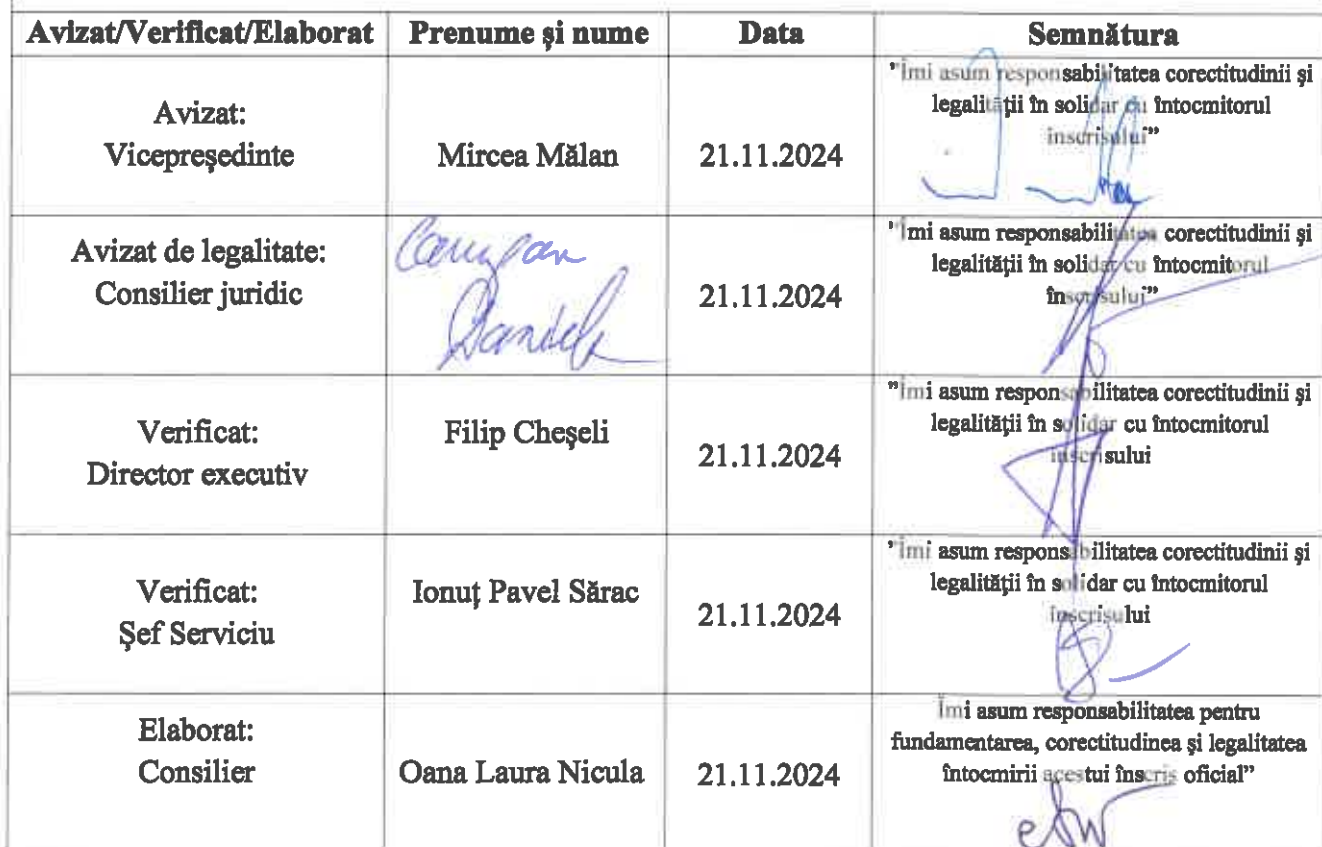 Avizat/Verificat/Elaborat Prenume și nume Data Semnătura
Avizat:
Vicepreședinte
Mircea Mălan
21.11.2024
"Îmi asum responsabilitatea corectitudinii și
legalității în solidar cu întocmitorul
înscrisului"
Avizat de legalitate:
Consilier juridic
21.11.2024
"Îmi asum responsabilitatea corectitudinii și
legalității în solidar cu întocmitorul
înscrisului"
Verificat:
Director executiv
Filip Cheșeli
21.11.2024
"Îmi asum responsabilitatea corectitudinii și
legalității în solidar cu întocmitorul
înscrisului
Verificat:
Șef Serviciu
Ionuț Pavel Sărac
21.11.2024
"Îmi asum responsabilitatea corectitudinii și
legalității în solidar cu întocmitorul
înscrisului
Elaborat:
Consilier
Oana Laura Nicula
21.11.2024
Îmi asum responsabilitatea pentru
fundamentarea, corectitudinea și legalitatea
întocmirii acestui înscris oficial"